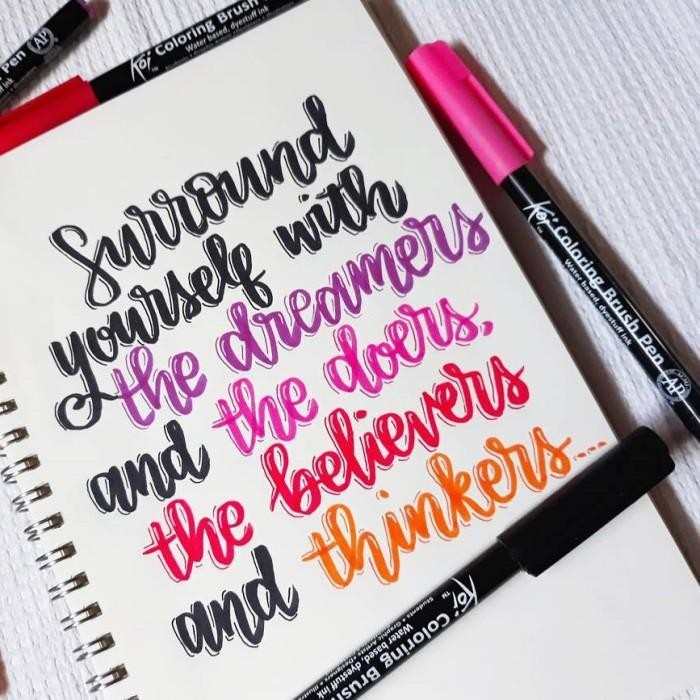 Pen AP
Koi Coloring Brush
Water based, dyestuff ink
Surround
yourself with
the dreamers
the doers,
and
the believers
the
and thinkers...
Koi Coloring Brush Pen AP
Water based, dyestuff ink
Koi Coloring Brush
Water based, dyestuff ink
Students • Graphic Artists • Designers